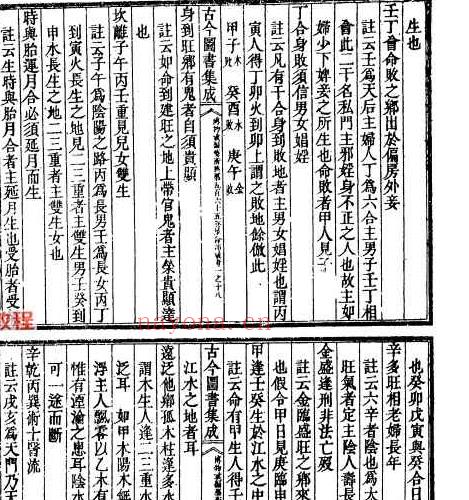 生也
壬丁會命敗之鄉出於偏房外妾
註云壬爲天后主婦人丁爲六合主男子壬丁相
會此二干名私門主邪婬身不正之人也故主如
婦少下婢妾之所生也命敗者甲人見子
丁合身敗須知男女娼婬
註云凡有干合身到敗地者主男女娼婬也謂丙
寅人得丁卯火到卯上謂之敗地餘倣此
甲子 癸酉 庚午
古今圖書集成
身到旺鄉有鬼者自須貴顯
註云如命到建旺之地上帶官鬼者主榮貴顯達
也
坎離子午丙壬重見兒女雙生
註云子午爲陰陽之路丙爲長男壬爲長女丙丁
到寅火長生之地見二三重者主雙生男子癸到
申水長生之地二三重者主雙生女也
時與胎運月合必須延月而生
註云生時與胎月合者主延月生也受胎者受
也癸卯戊寅與癸合日
辛多旺相老婦長年
註云六辛者陰也爲大
旺氣者定主陰人壽長
金盛逢刑非法亡歿
註云金臨盛旺之鄉來
也假令甲日見庚臨申
甲逢壬癸生於江水之中
註云命有甲生人得壬
江水之地者耳
古今圖書集成
遠泛他鄉孤木柱逢多水
謂木生人逢二三重水
泛耳如甲木陽木紙
浮主人飄零以乙木有
惟有湮淪之患耳陰水
可一途而斷
辛乾丙巽術士醫流
註云戌亥爲天門乃天
教程
nayona.cn